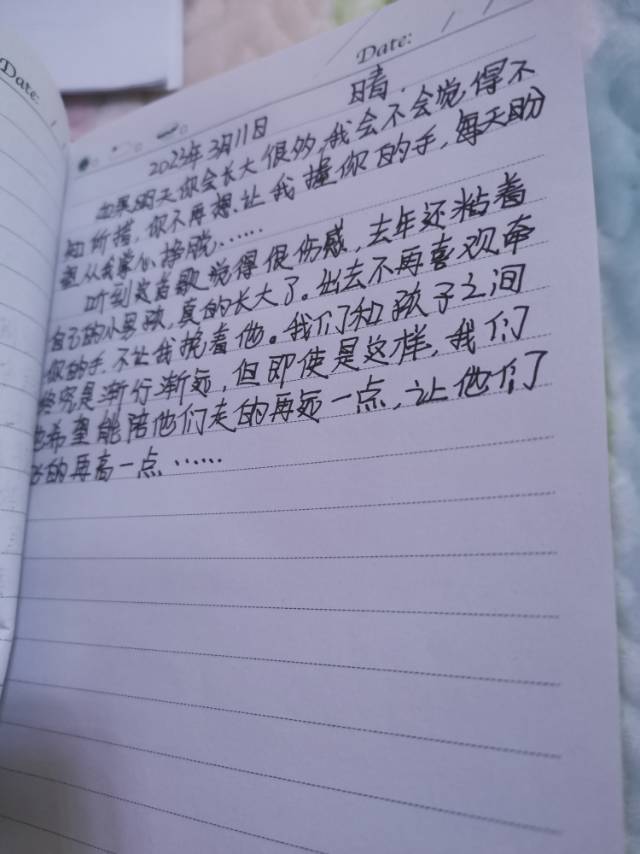 Date:
Date:
2023年3月11日 晴.
如果明天你会长大很多,我会不会觉得不
知所措,你不再想让我握你的手,每天盼
望从我掌心挣脱……
听到这首歌觉得很伤感,去年还粘着
自己的小男孩,真的长大了。出去不再喜欢牵
你的手,不让我挽着他。我们和孩子之间
终究是渐行渐远,但即使是这样,我们
也希望能陪他们走的再远一点,让他们
的再高一点……